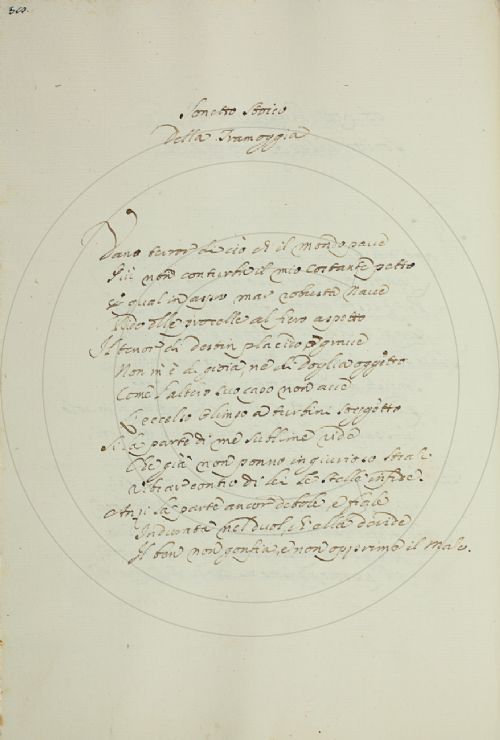 Sonetto Stoico
Della Tramoggia
Vano terror di ciò ch il mondo pave
Più non conturbi il mio costante petto
qual in mar robusta Nave
Ride procelle al fiero aspetto
Il tenor di destin placido grave
Non m'è di gioia nè di doglia oggetto
Come l'altero suo capo non ave
eccelso Olimpo a turbini soggetto
Si la parte di me sublime ride
Che già non ponno ingiuriosi strali
vibrar contro di lei le stelle infide.
Anzi la parte ancor debole, e
Indurata nel duol, ch ella divide
Il ben non gonfia, e non opprime il Male.